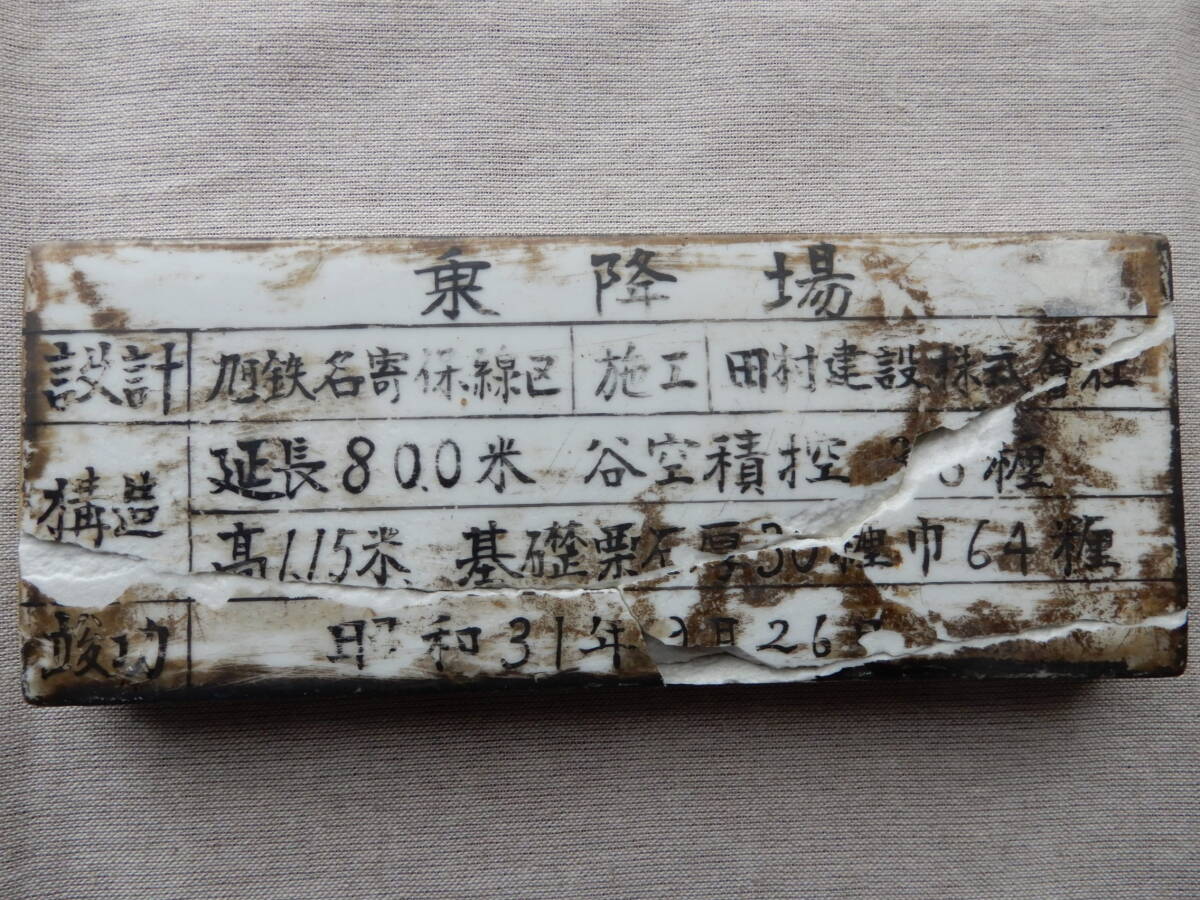 乗降場
設計 旭鉄名寄保線区 施工 田村建設株式会社
構造 延長80.0米 谷空積控 糎
高1.15米 基礎栗石厚30糎巾64糎
竣功 昭和31年 月26日